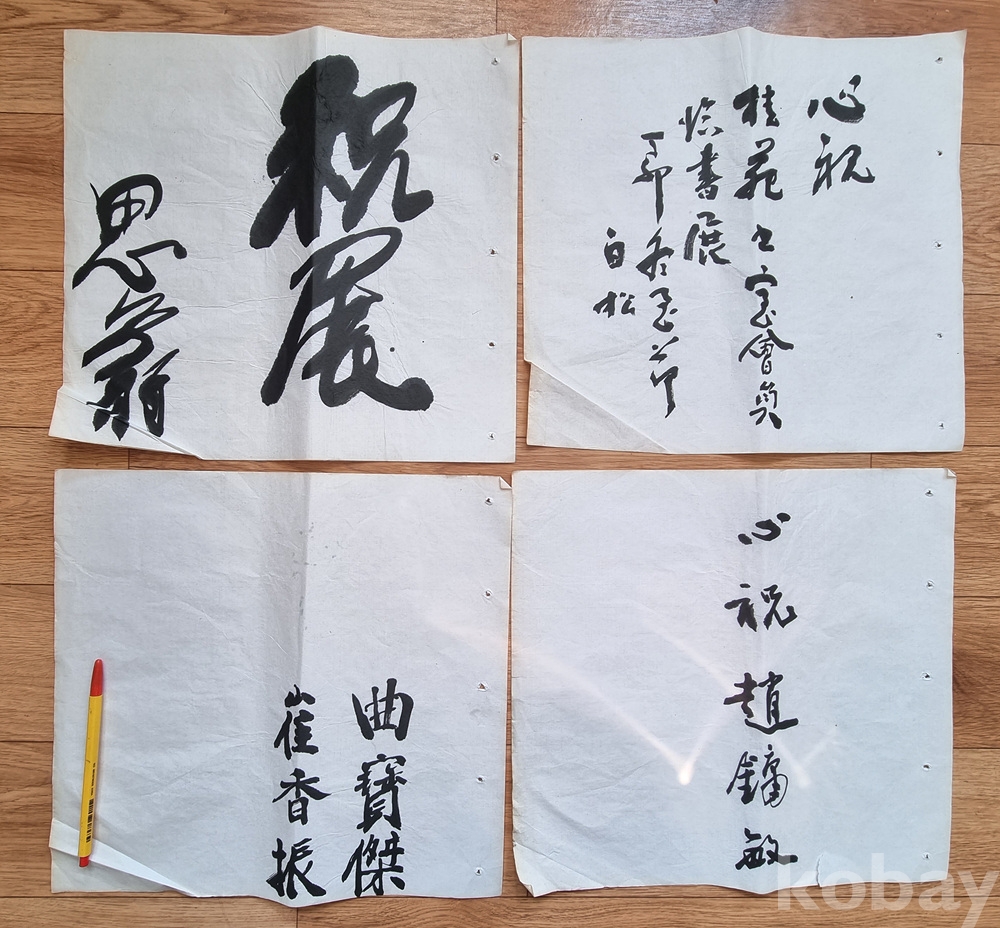 祝展
思翁
心祝
桂苑書室會員
臨書展
丁卯冬至節
白松
曲寶傑
崔香振
心祝 趙鏞敏
kobay